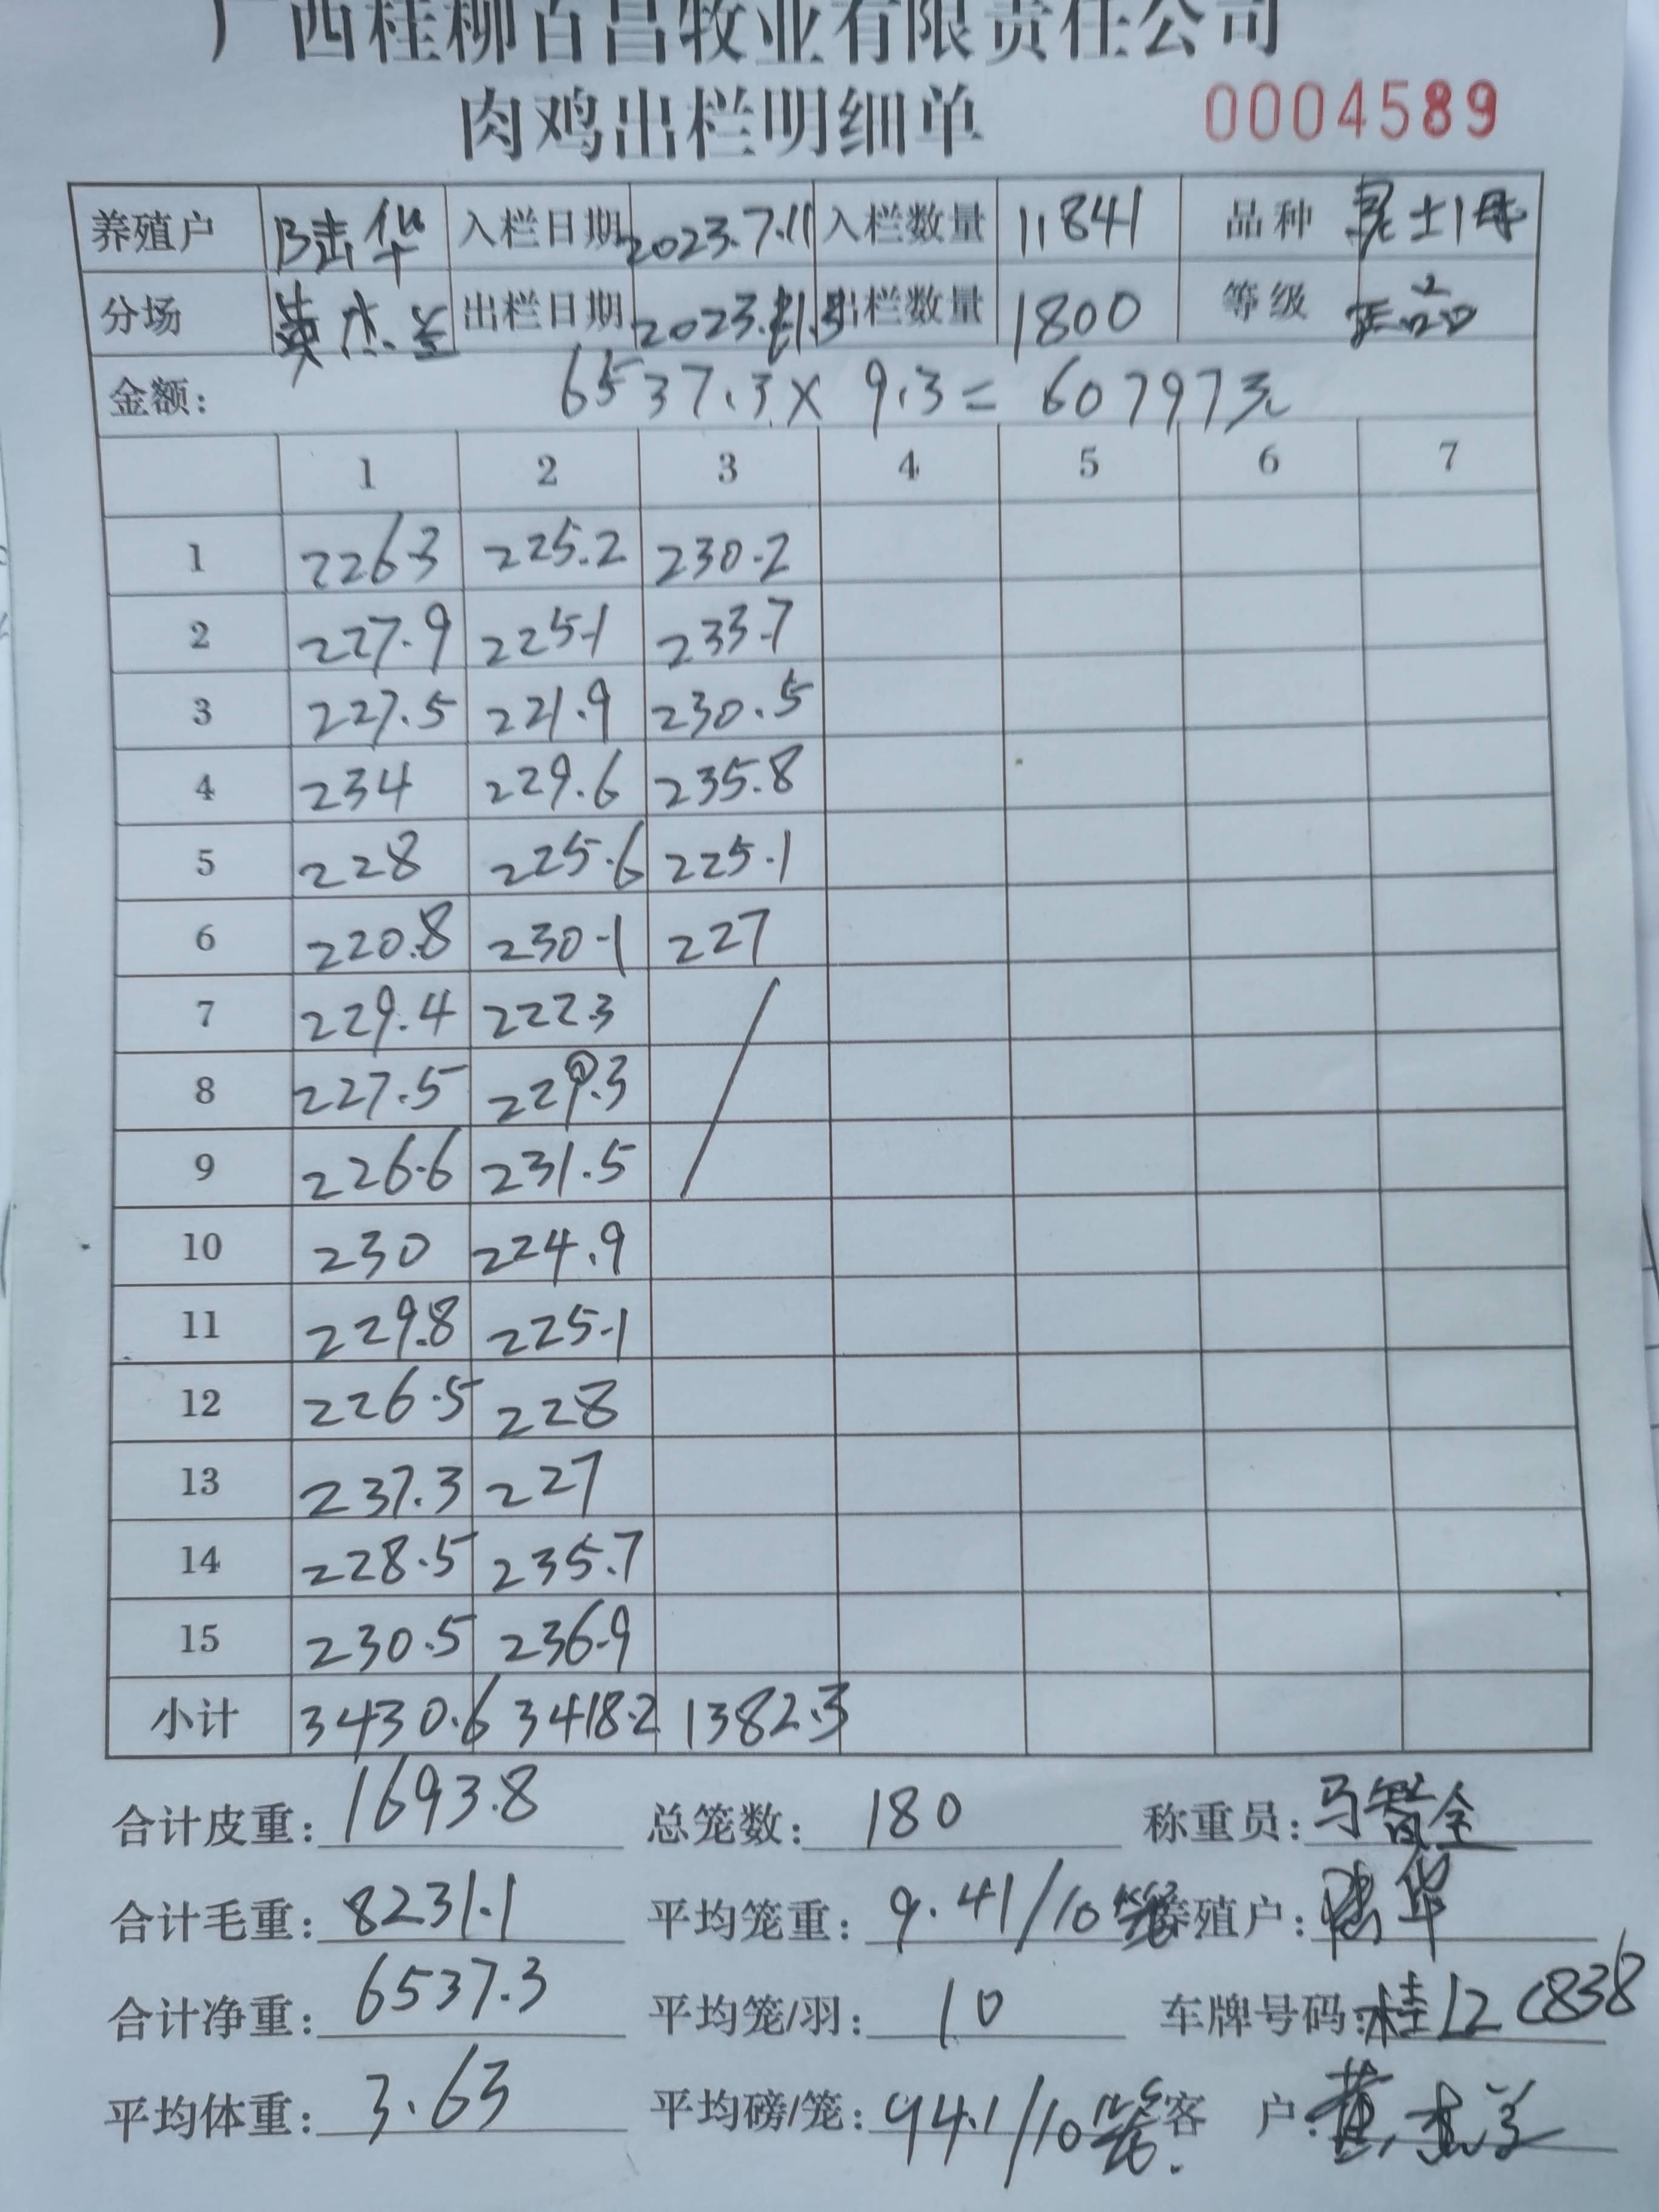 广西桂柳百昌牧业有限责任公司
肉鸡出栏明细单 0004589
养殖户 华 入栏日期 2023.7.11 入栏数量 11841 品种
分场 出栏日期 2023. 出栏数量 1800 等级 正品
金额: 6537.3×9.3=60797元
1 2 3 4 5 6 7
1 226.3 225.2 230.2
2 227.9 225.1 233.7
3 227.5 221.9 230.5
4 234 229.6 235.8
5 228 225.6 225.1
6 220.8 230.1 227
7 229.4 222.3
8 227.5 229.3
9 226.6 231.5
10 230 224.9
11 229.8 225.1
12 226.5 228
13 237.3 227
14 228.5 235.7
15 230.5 236.9
小计 3430.6 3418.2 1382.3
合计皮重: 1693.8 总笼数: 180 称重员: 马智全
合计毛重: 8231.1 平均笼重: 9.41/10笼 养殖户: 华
合计净重: 6537.3 平均笼/羽: 10 车牌号码: 桂L2C838
平均体重: 3.63 平均磅/笼: 94.1/10笼. 客 户: 黄